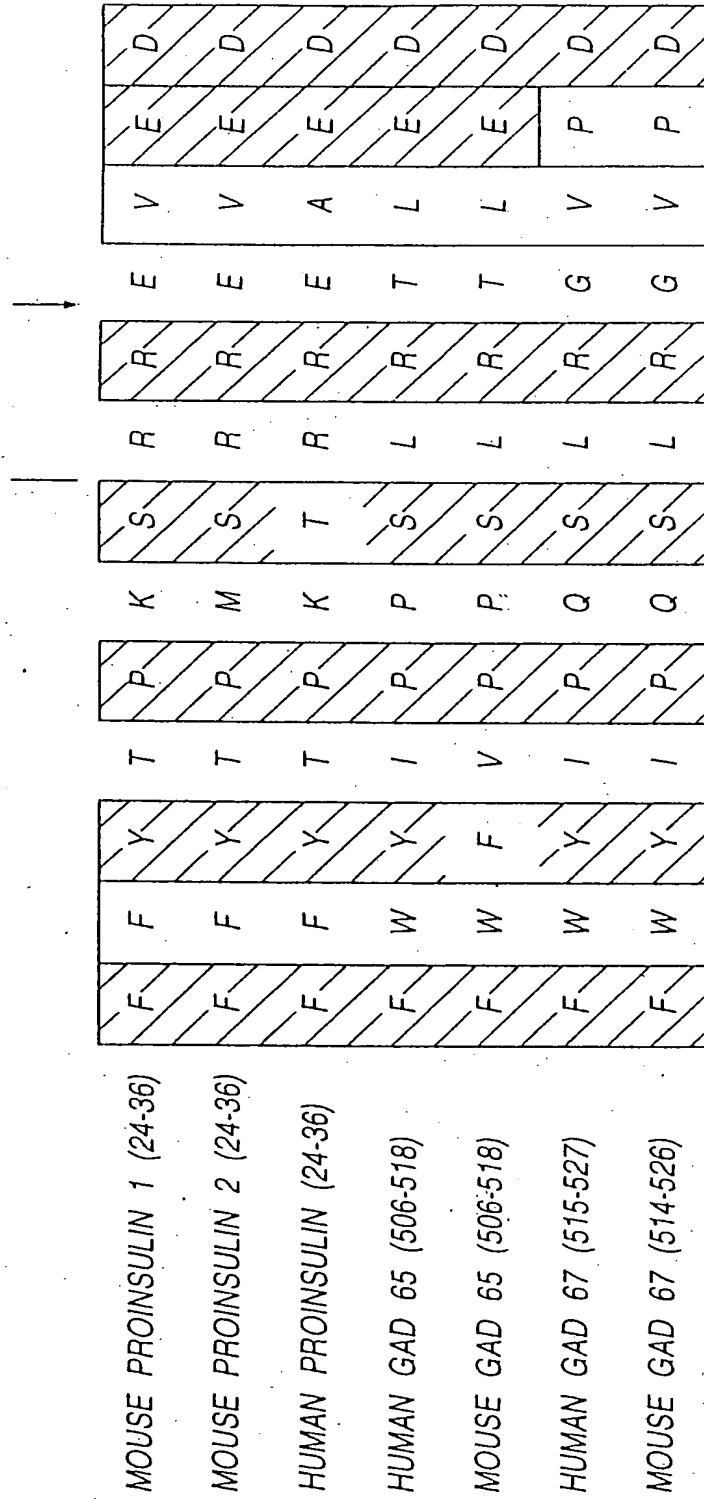 MOUSE PROINSULIN 1 (24-36) F F Y T P K S R R E V E D
MOUSE PROINSULIN 2 (24-36) F F Y T P M S R R E V E D
HUMAN PROINSULIN (24-36) F F Y T P K T R R E A E D
HUMAN GAD 65 (506-518) F W Y I P P S L R T L E D
MOUSE GAD 65 (506-518) F W F V P P S L R T L E D
HUMAN GAD 67 (515-527) F W Y I P Q S L R G V P D
MOUSE GAD 67 (514-526) F W Y I P Q S L R G V P D